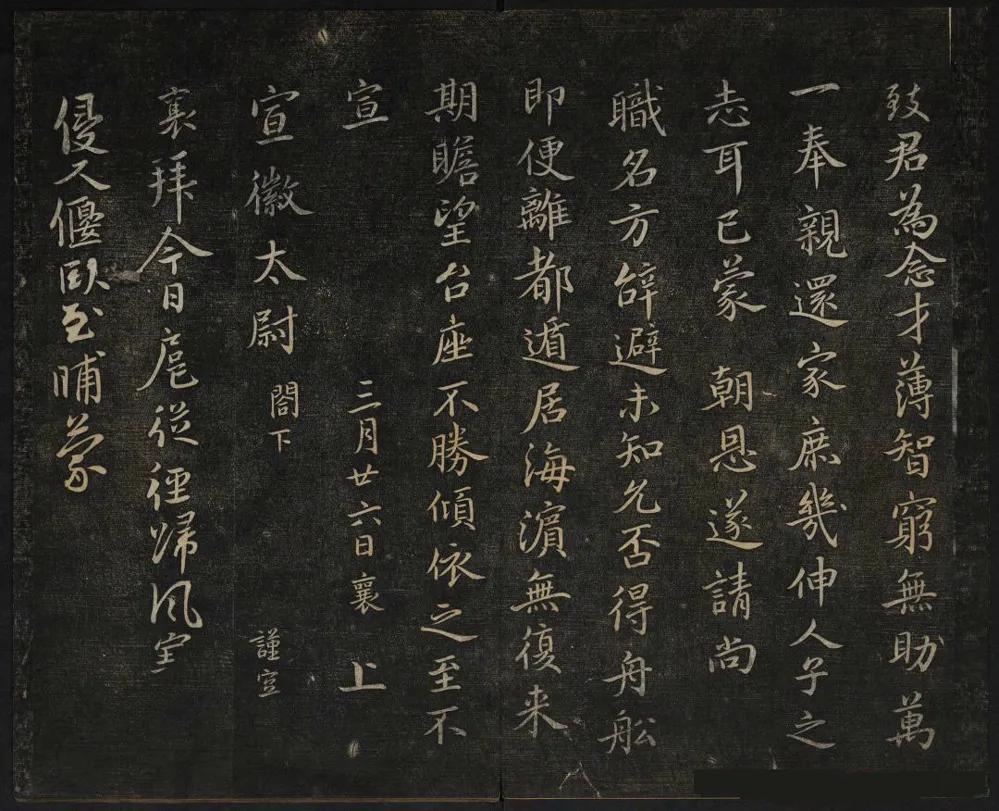 致君為念才薄智窮無助萬
一奉親還家庶幾伸人子之
志耳已蒙朝恩遂請尚
職名方辞避未知允否得舟舩
即便離都遁居海濵無復来
期瞻望台座不勝傾依之至不
宣 三月廿六日襄上
宣徽太尉閤下 謹空
襄拜今日扈従徑歸風室
優又偃臥至晡蒙